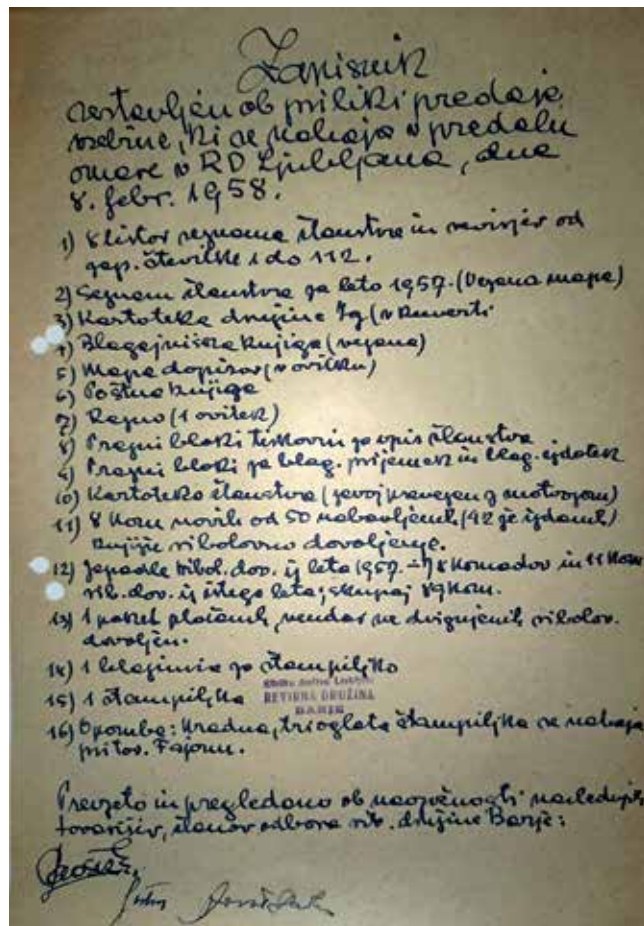 Zapisnik
sestavljen ob priliki predaje
vsebine, ki se nahaja v predalu
omare v RD Ljubljana, dne
8. febr. 1958.
1) 8 listov seznama članstva in revirjev od
zap. številke 1 do 112.
2) Seznam članstva za leto 1957. (Vezana mapa)
3) Kartoteka družine Ig (v kuverti
4) Blagajniška knjiga (vezana)
5) Mapa dopisov (v ovitku)
6) Poštna knjiga
7) Razno (1 ovitek)
8) Prazni bloki tiskovni za vpis članstva
9) Prazni bloki za blag. prijemek in blag. izdatek
10) Kartoteko članstva (zavoj prevezan z motvozom)
11) 8 kom novih od 50 nabavljenih (42 je izdanih)
knjižic ribolovno dovoljenje.
12) Zapadle ribol. dov. iz leta 1957. - 78 komadov in 11 kom
rib. dov. iz istega leta, skupaj 89 kom.
13) 1 paket plačanih, vendar ne dvignjenih ribolov.
dovoljen.
14) 1 blazinica za štampiljko
15) 1 štampiljka
REVIRNA DRUŽINA
BARJE
16) Opomba: Uradna, trioglata štampiljka se nahaja
pri tov. Fajonu.
Prevzeto in pregledano ob navzočnosti naslednjih
tovarišev, članov odbora rib. družine Barje: